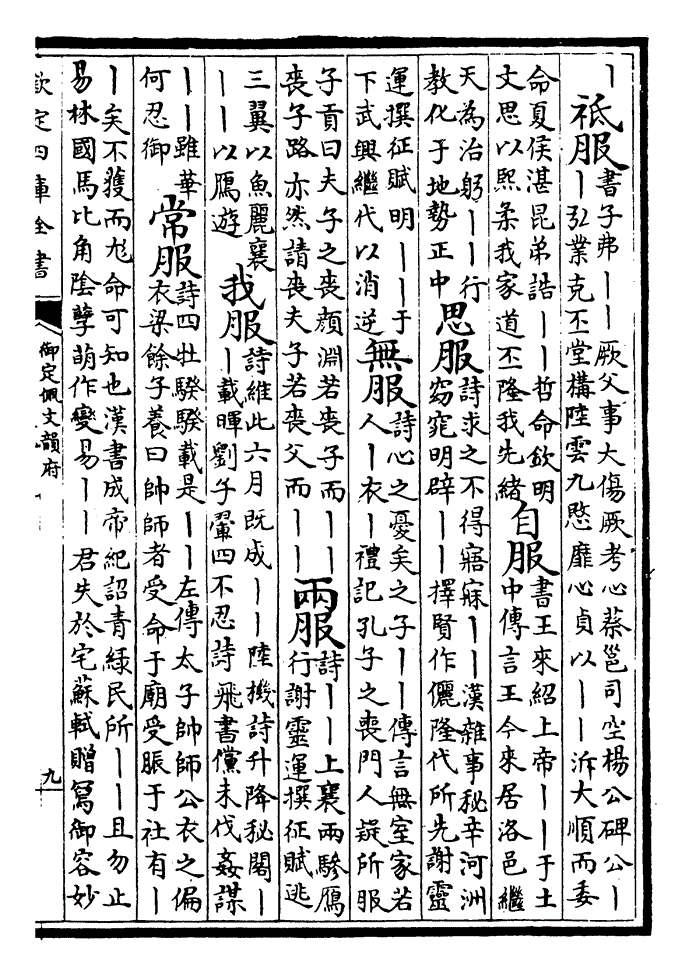 丨
祗服
書子弗丨丨厥父事大傷厥考心蔡邕司空楊公碑公丨
丨弘業克丕堂構陸雲九愍靡心貞以丨丨泝大順而委
命夏侯湛昆弟誥丨丨哲命欽明
文思以熙柔我家道丕隆我先緒
自服
書王來紹上帝丨丨于土
中傳言王今來居洛邑繼
天為治躬丨丨行
教化于地勢正中
思服
詩求之不得寤寐丨丨漢雜事秘辛河洲
窈窕明辟丨丨擇賢作儷隆代所先謝靈
運撰征賦明丨丨于
下武興繼代以消逆
無服
詩心之憂矣之子丨丨傳言無室家若
人丨衣丨禮記孔子之喪門人疑所服
子貢曰夫子之喪顔淵若喪子而丨丨
喪子路亦然請喪夫子若喪父而丨丨
兩服
詩丨丨上襄兩驂鴈
行謝靈運撰征賦逃
三翼以魚麗襄
丨丨以鴈遊
我服
詩維此六月既成丨丨陸機詩升降秘閣丨
丨載暉劉子翬四不忍詩飛書儻未伐姦謀
丨丨雖華
何忍御
常服
詩四牡騤騤載是丨丨左傳太子帥師公衣之偏
衣梁餘子養曰帥師者受命于廟受脤于社有丨
丨矣不獲而尨命可知也漢書成帝紀詔青緑民所丨丨且勿止
易林國馬比角陰孽萌作變易丨丨君失於宅蘇軾贈冩御容妙
欽定四庫全書
御定佩文韻府
九